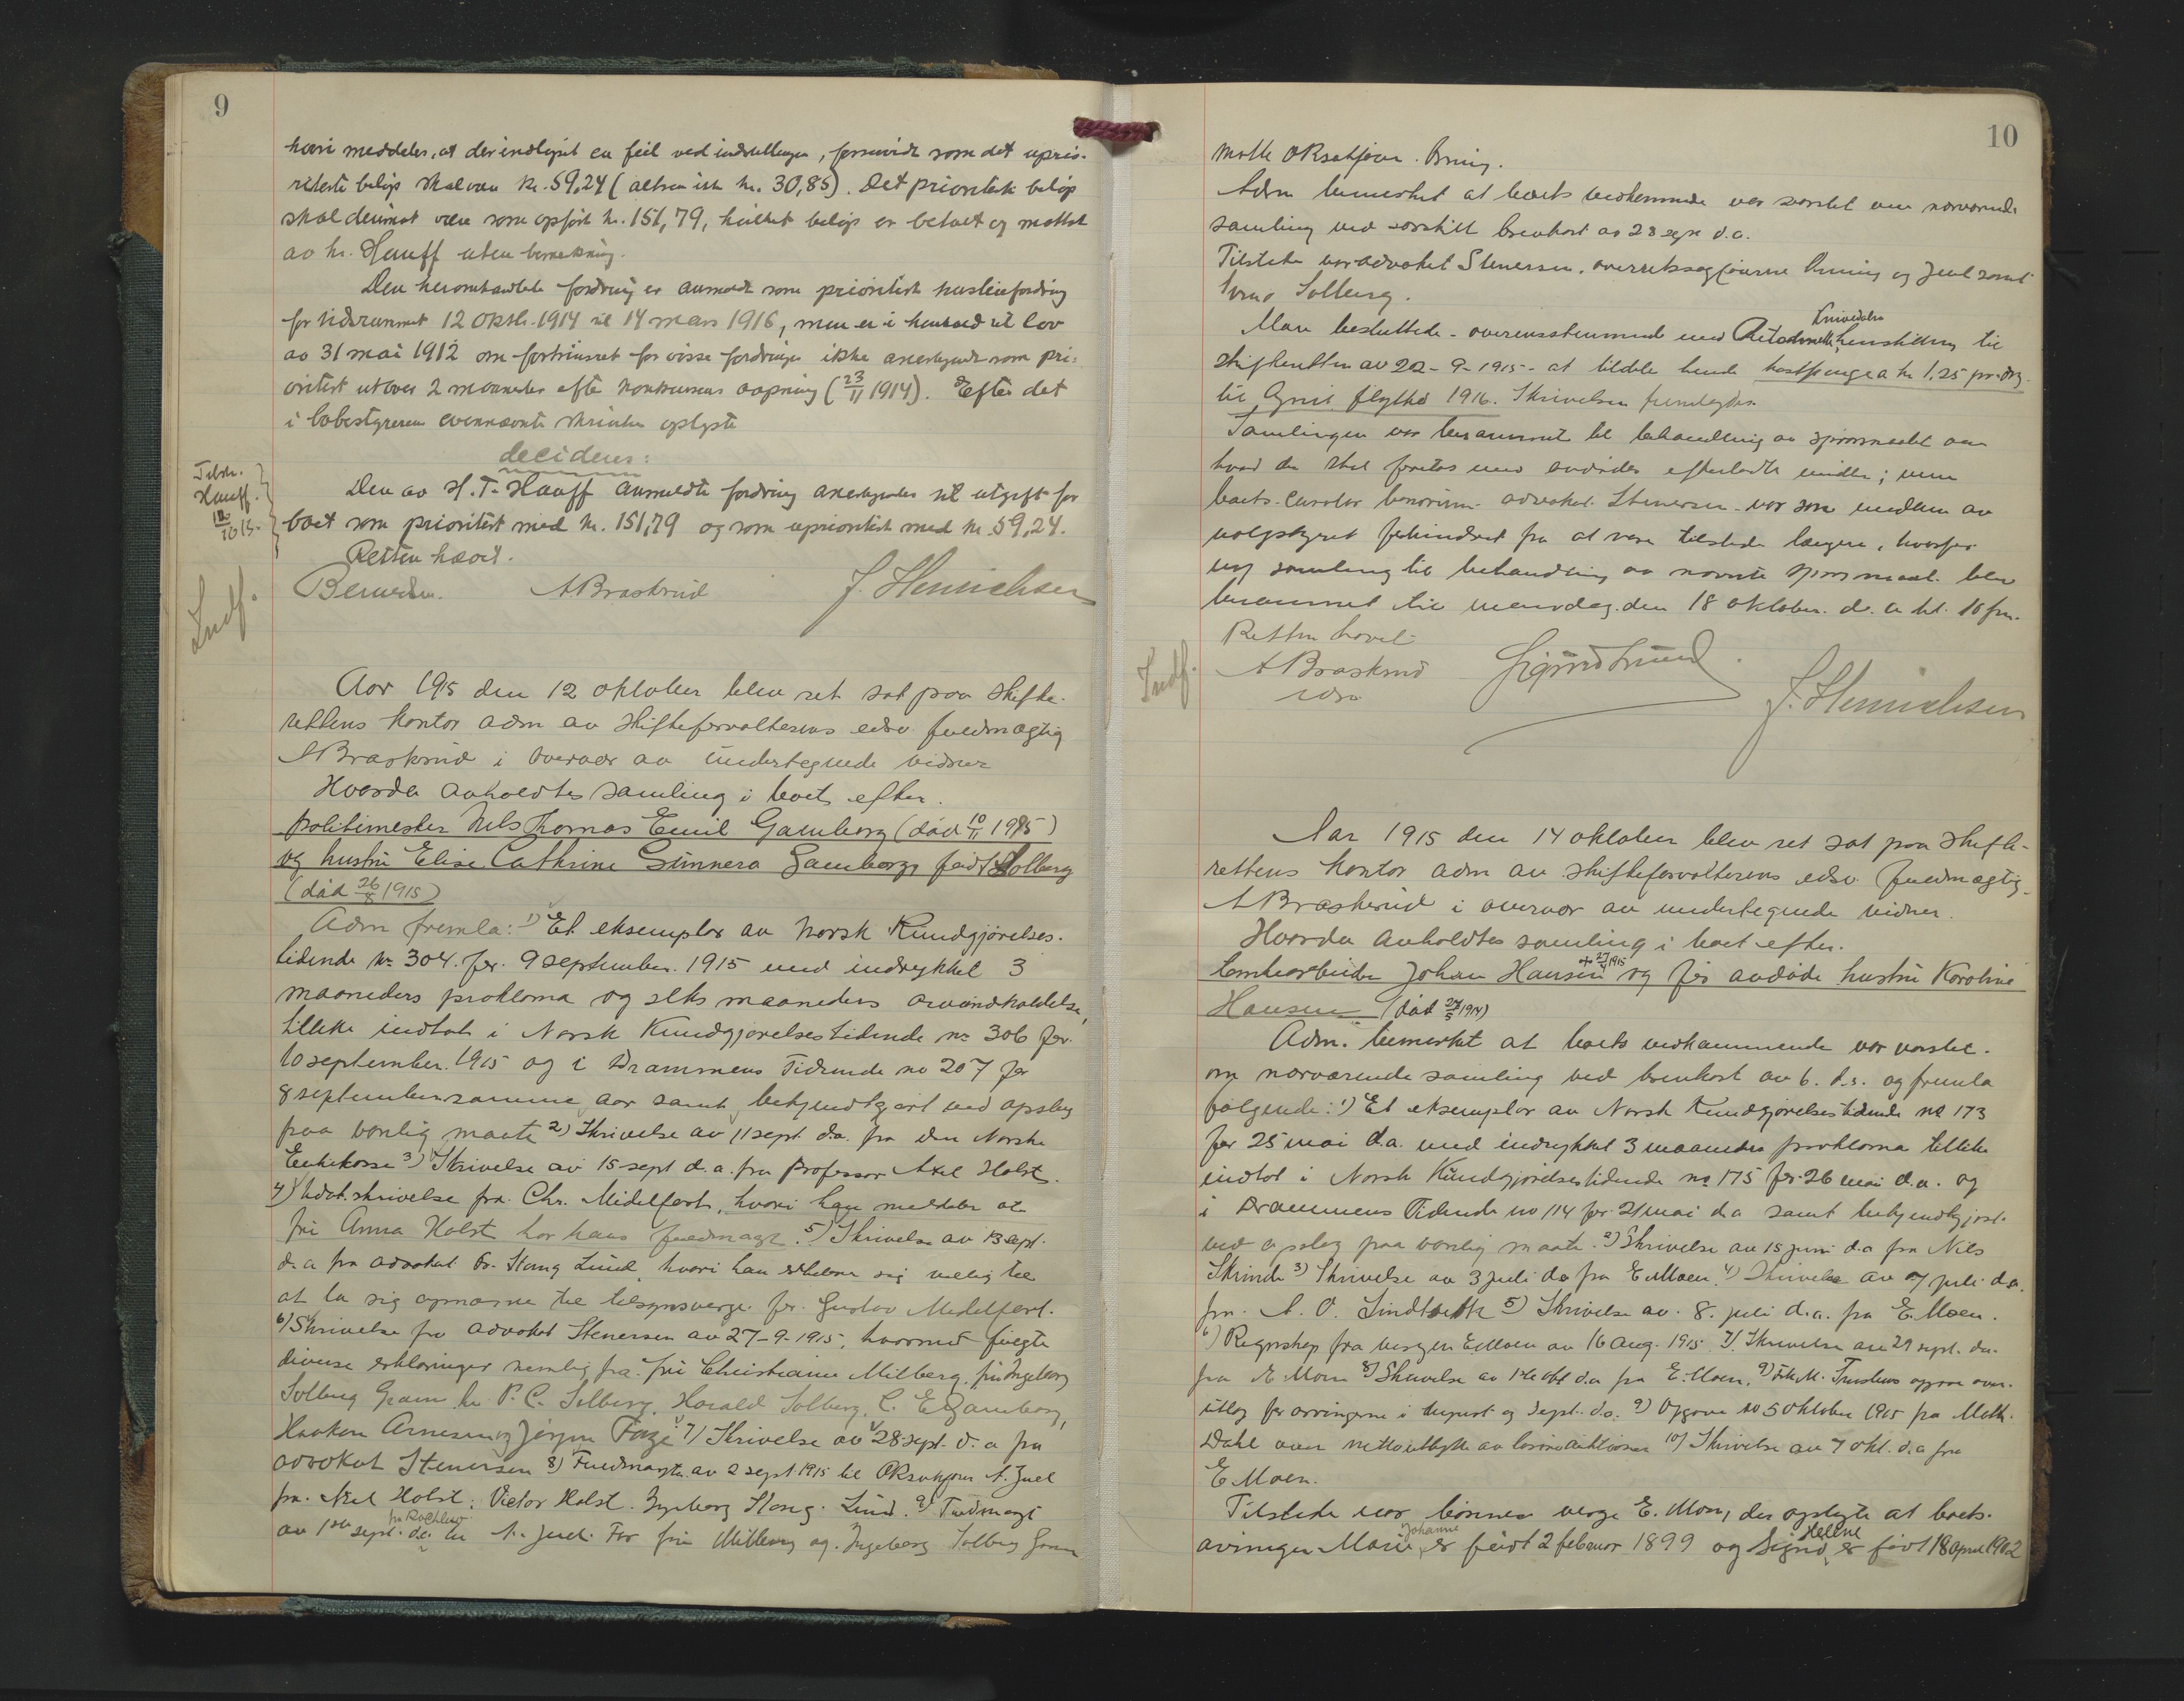 9
hvori meddeles, at der indløpet en feil ved indstillingen, forsaavidt som det uprio-
riterte beløp skal være kr. 59,24 (altsaa ikke kr. 30,85). Det prioriterte beløp
skal derimot være som opført kr. 151,79, hvilket beløp er betalt og mottat
av hr. Hauff uten bemerkning.
Den heromhandlede fordring er anmeldt som prioritert husleiefordring
for tidsrummet 12 oktbr. 1914 til 14 mars 1916, men er i henhold til lov
av 31 mai 1912 om fortrinsret for visse fordringer ikke anerkjendt som pri-
oritert utover 2 maaneder efter konkursens aapning (23/11 1914). Efter det
i bobestyrerens ovennævnte skrivelse oplyste
decideres:
Tilskr.
Hauff.
12/10 15.
Den av H. T. Hauff anmeldte fordring anerkjendes til utgift for
boet som prioritert med kr. 151,79 og som uprioritert med kr. 59,24.
Retten hævet.
Berntsen. A Braskrud J. Henrichsen
Indf.
Aar 1915 den 12 oktober blev ret sat paa skifte-
rettens kontor adm av skifteforvalterens edsv fuldmægtig
A Braskrud i overvær av undertegnede vidner
Hvorda avholdtes samling i boet efter.
politimester Nils Thomas Emil Gamborg (død 10/11 1915)
og hustru Elise Cathrine Gunnera Gamborg, født Solberg
(død 26/8 1915)
Adm fremla: 1) Et eksemplar av Norsk Kundgjørelses-
tidende nr 304. for. 9 september. 1915 med indrykket 3
maaneders proklama og seks maaneders arveindkaldelse,
tillike indtat i Norsk Kundgjørelsestidende nr 306 for.
10 september. 1915 og i Drammens Tidende no 207 for
8 september samme aar samt bekjendtgjort ved opslag
paa vanlig maate 2) Skrivelse av 11 sept. d.a. fra den Norske
Enkekasse 3) Skrivelse av 15 sept d.a. fra professor Axel Holst.
4) Udat. skrivelse fra Chr. Midelfart, hvori han meddeler at
fru Anna Holst har hans fuldmagt. 5) Skrivelse av 13 sept.
d.a fra advokat Fr. Stang Lund, hvori han erklærer sig villig til
at la sig opnævne til tilsynsverge for Gustav Midelfart.
6) Skrivelse fra advokat Stenersen av 27-9-1915, hvormed fulgte
diverse erklæringer nemlig fra fru Christiane Milberg, fru Ingeborg
Solberg Gram, hr P. C. Solberg, Harald Solberg, C. E. Gamborg,
Haakon Arnesen og Jørgen Faye 7) Skrivelse av 28 sept. d.a fra
advokat Stenersen 8) Fuldmagter av 2 sept 1915 til ORsakfører A. Juel
fra Axel Holst, Victor Holst. Ingeborg Stang. Lund. 9) Fuldmagt
av 1ste sept. d.a til A. Juel. For fru Milberg og Ingeborg Solberg Gram
10
motte ORsakfører. Bruing.
Adm bemerket at boets vedkommende var varslet om nærværende
samling ved særskilt brevkort av 28 sept d.a.
Tilstede var advokat Stenersen, overretssagførerne Bruing og Juel samt
Solberg.
Man besluttede - overensstemmende med henstilling til
skifteretten av 22-9-1915 - at tildele hende kostpenge a kr 1,25 pr. dag
til April flyttid 1916. Skrivelsen fremlagdes
Samlingen var berammet til behandling av spørsmaalet om
hvad der skal foretas med avdødes efterladte midler; men
boets curator bonorum advokat Stenersen var som medlem av
valgstyret forhindret fra at være tilstede længere, hvorfor
ny samling til behandling av nævnte spørsmaal blev
berammet til mandag den 18 oktober d.a kl. 10 fm.
Retten hævet
A Braskrud Sigurd Lund. J. Henrichsen
Indf.
Aar 1915 den 14 oktober blev ret sat paa skifte-
rettens kontor adm av skifteforvalterens edsv. fuldmægtig
A Braskerud i overvær av undertegnede vidner.
Hvorda avholdtes samling i boet efter.
+ 27/4 1915
tomtearbeider Johan Hansen og før avdøde hustru Karoline
Hansen (død 27/5 1914)
Adm. bemerket at boets vedkommende var varslet
om nærværende samling ved brevkort av 6. d.s. og fremla
følgende: 1) Et eksemplar av Norsk Kundgjørelsestidende no 173
for 25 mai d.a. med indrykket 3 maaneders proklama tillike
indtat i Norsk Kundgjørelsestidende no 175 for 26 mai d.a. og
i Drammens Tidende no 114 for 21 mai d.a samt bekjendtgjort
ved opslag paa vanlig maate. 2) Skrivelse av 15 juni d.a fra Nils
Skinde 3) Skrivelse av 3 juli d.a fra E. Moen. 4) Skrivelse av 7 juli d.a.
fra A. O. Lindbæk 5) Skrivelse av 8. juli d.a. fra E. Moen.
6) Regnskap fra vergen E. Moen av 16 Aug. 1915 7) Skrivelse av 29 sept. d.a.
fra E. Moen 8) Skrivelse av 1ste okt d.a fra E. Moen. 9) opgave over
utlæg for arvingerne i August og Sept. d.a. 9) Opgave av 5 oktober 1915 fra Math.
Dahl over nettoutbytte av løsøreauktionen 10) Skrivelse av 7 okt. d.a fra
E Moen.
Tilstede var børnenes verge E. Moen, der oplyste at boets
Johanne Helene
arvinger Marie, er født 2 februar 1899 og Signe, er født 18 april 1902